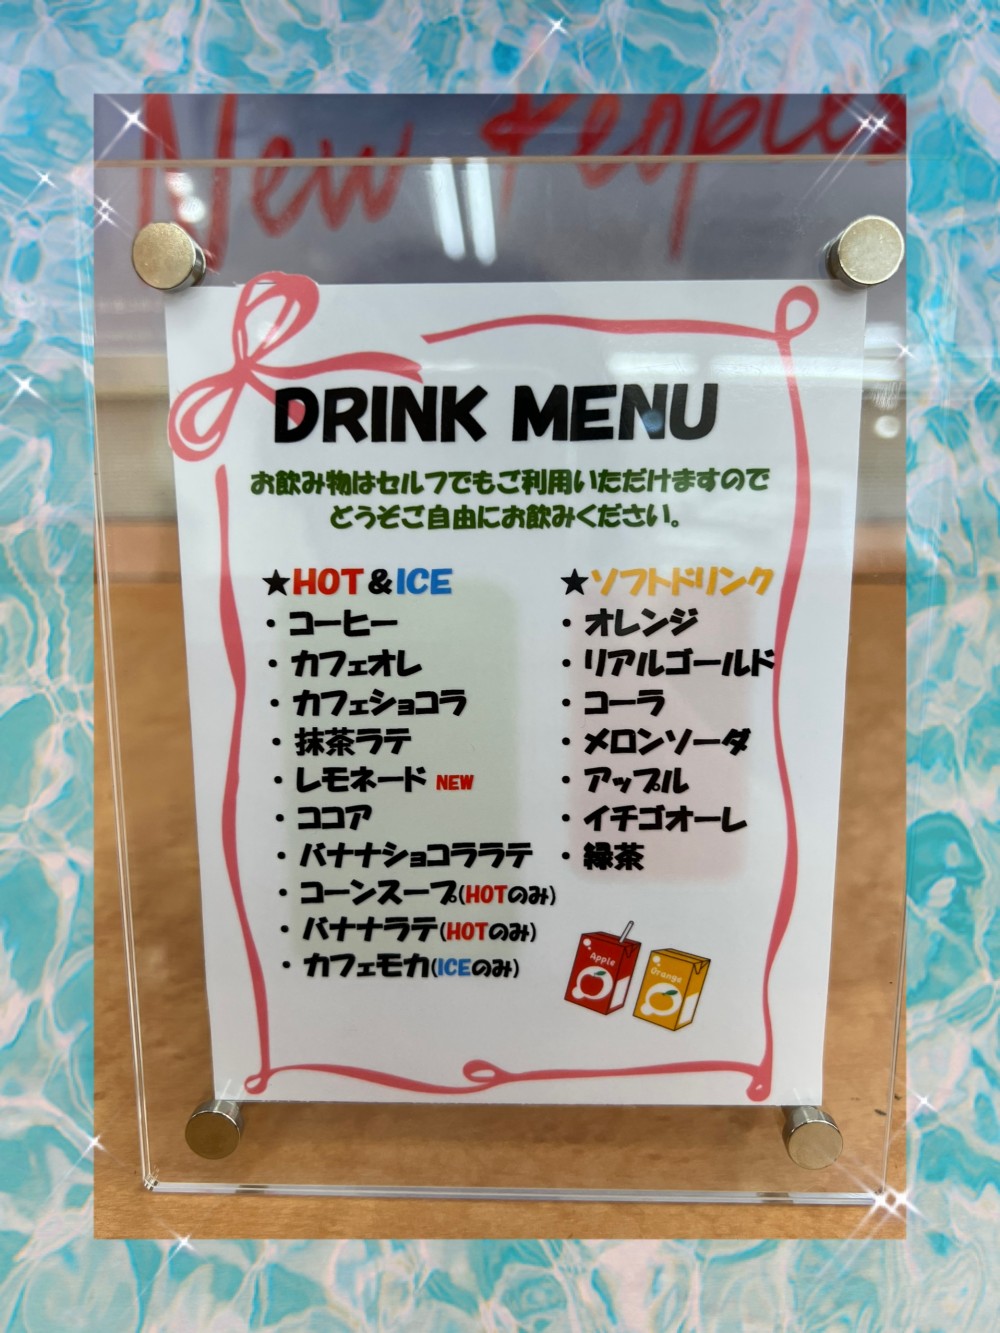 New People
DRINK MENU
お飲み物はセルフでもご利用いただけますので
どうぞご自由にお飲みください。
★HOT&ICE
・コーヒー
・カフェオレ
・カフェショコラ
・抹茶ラテ
・レモネード NEW
・ココア
・バナナショコララテ
・コーンスープ(HOTのみ)
・バナナラテ(HOTのみ)
・カフェモカ(ICEのみ)
★ソフトドリンク
・オレンジ
・リアルゴールド
・コーラ
・メロンソーダ
・アップル
・イチゴオーレ
・緑茶
Apple
Orange